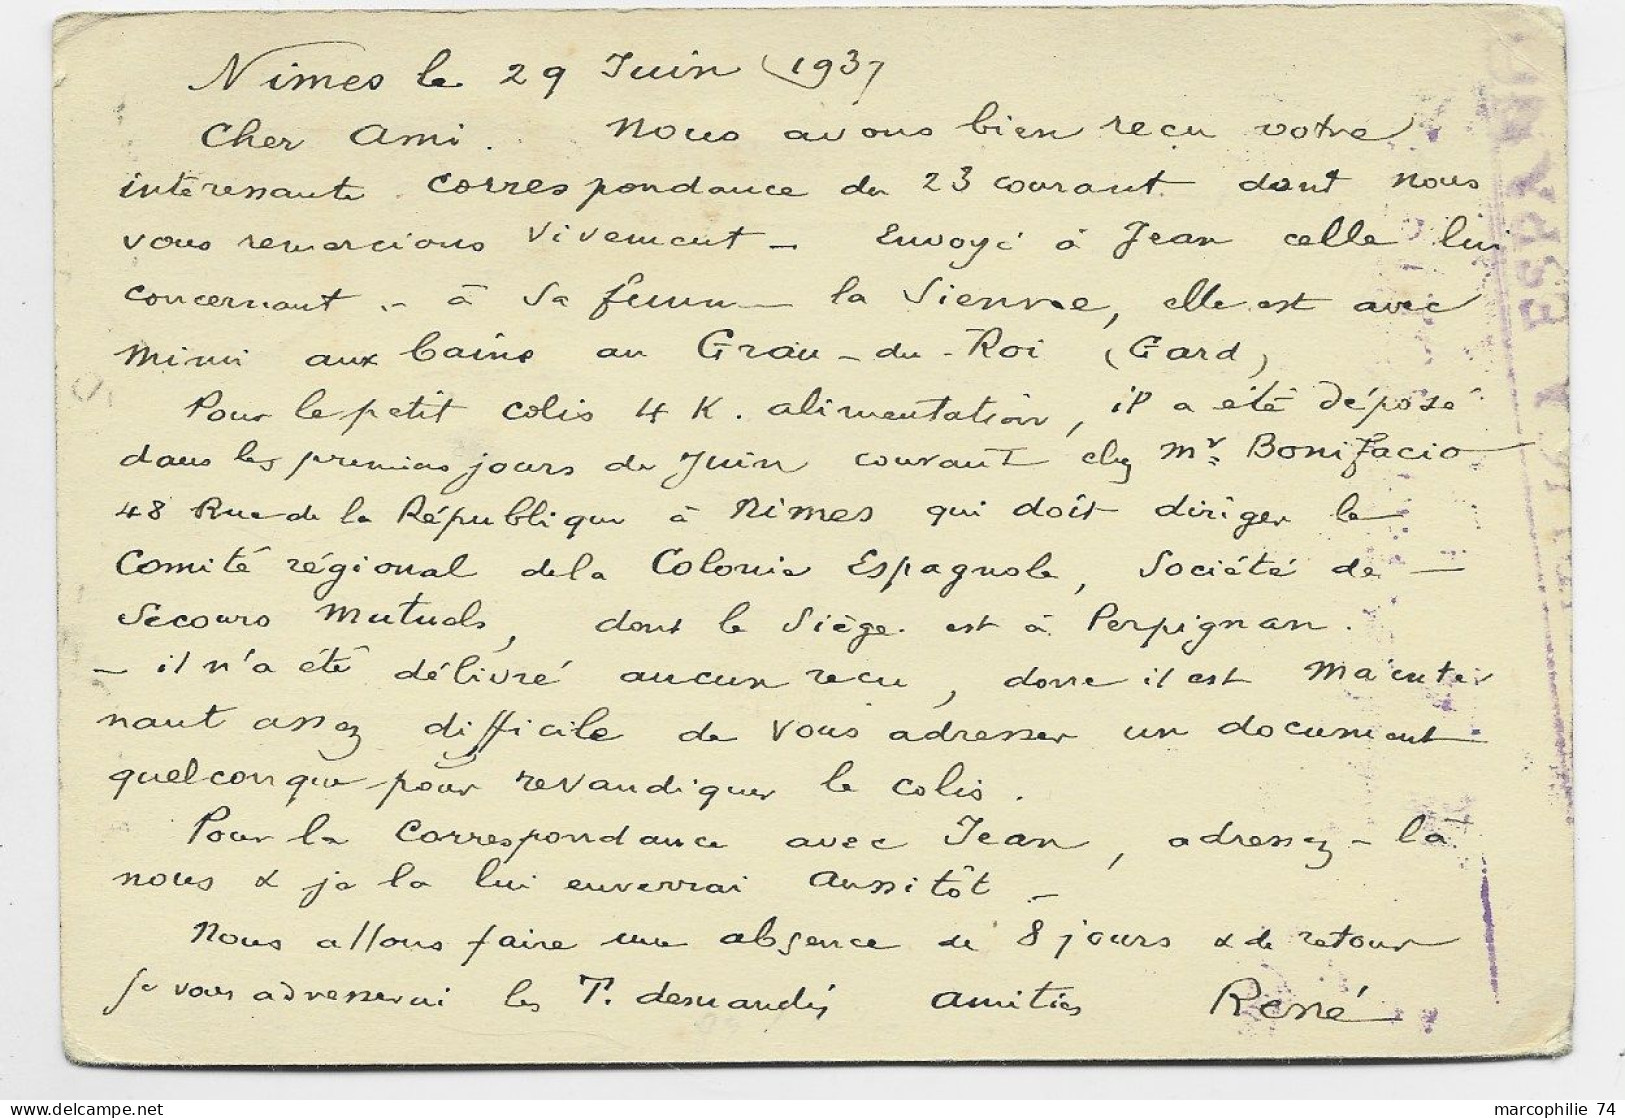 Nimes le 29 Juin 1937
Cher Ami. Nous avons bien recu votre
intéressante correspondance du 23 courant dont nous
vous remercions vivement - Envoyé à Jean celle lui
concernant - à sa femme - la Sienne, elle est avec
Mimi aux bains au Grau-du-Roi (Gard)
Pour le petit colis 4 K. alimentation, il a été déposé
dans les premiers jours de Juin courant chez Mr Bonifacio
48 Rue de la République à Nimes qui doit diriger le
Comité régional de la Colonie Espagnole, Société de -
Secours Mutuels, dont le Siège est à Perpignan.
- il n'a été délivré aucun recu, donc il est Mainte
nant assez difficile de vous adresser un document
quelconque pour revandiquer le colis.
Pour la correspondance avec Jean, adressez-la
nous & je la lui enverrai aussitôt -
Nous allons faire une absence de 8 jours & de retour
je vous adresserai les T. demandés Amitiés René
ESPA
marcophilie 74